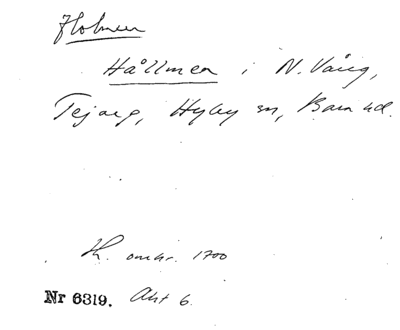 Holmen
Hållmen i N. Vång,
Tejarp, Hyby sn, Bara hd.
Kt. omkr. 1700
Nr 6319. Akt 6.